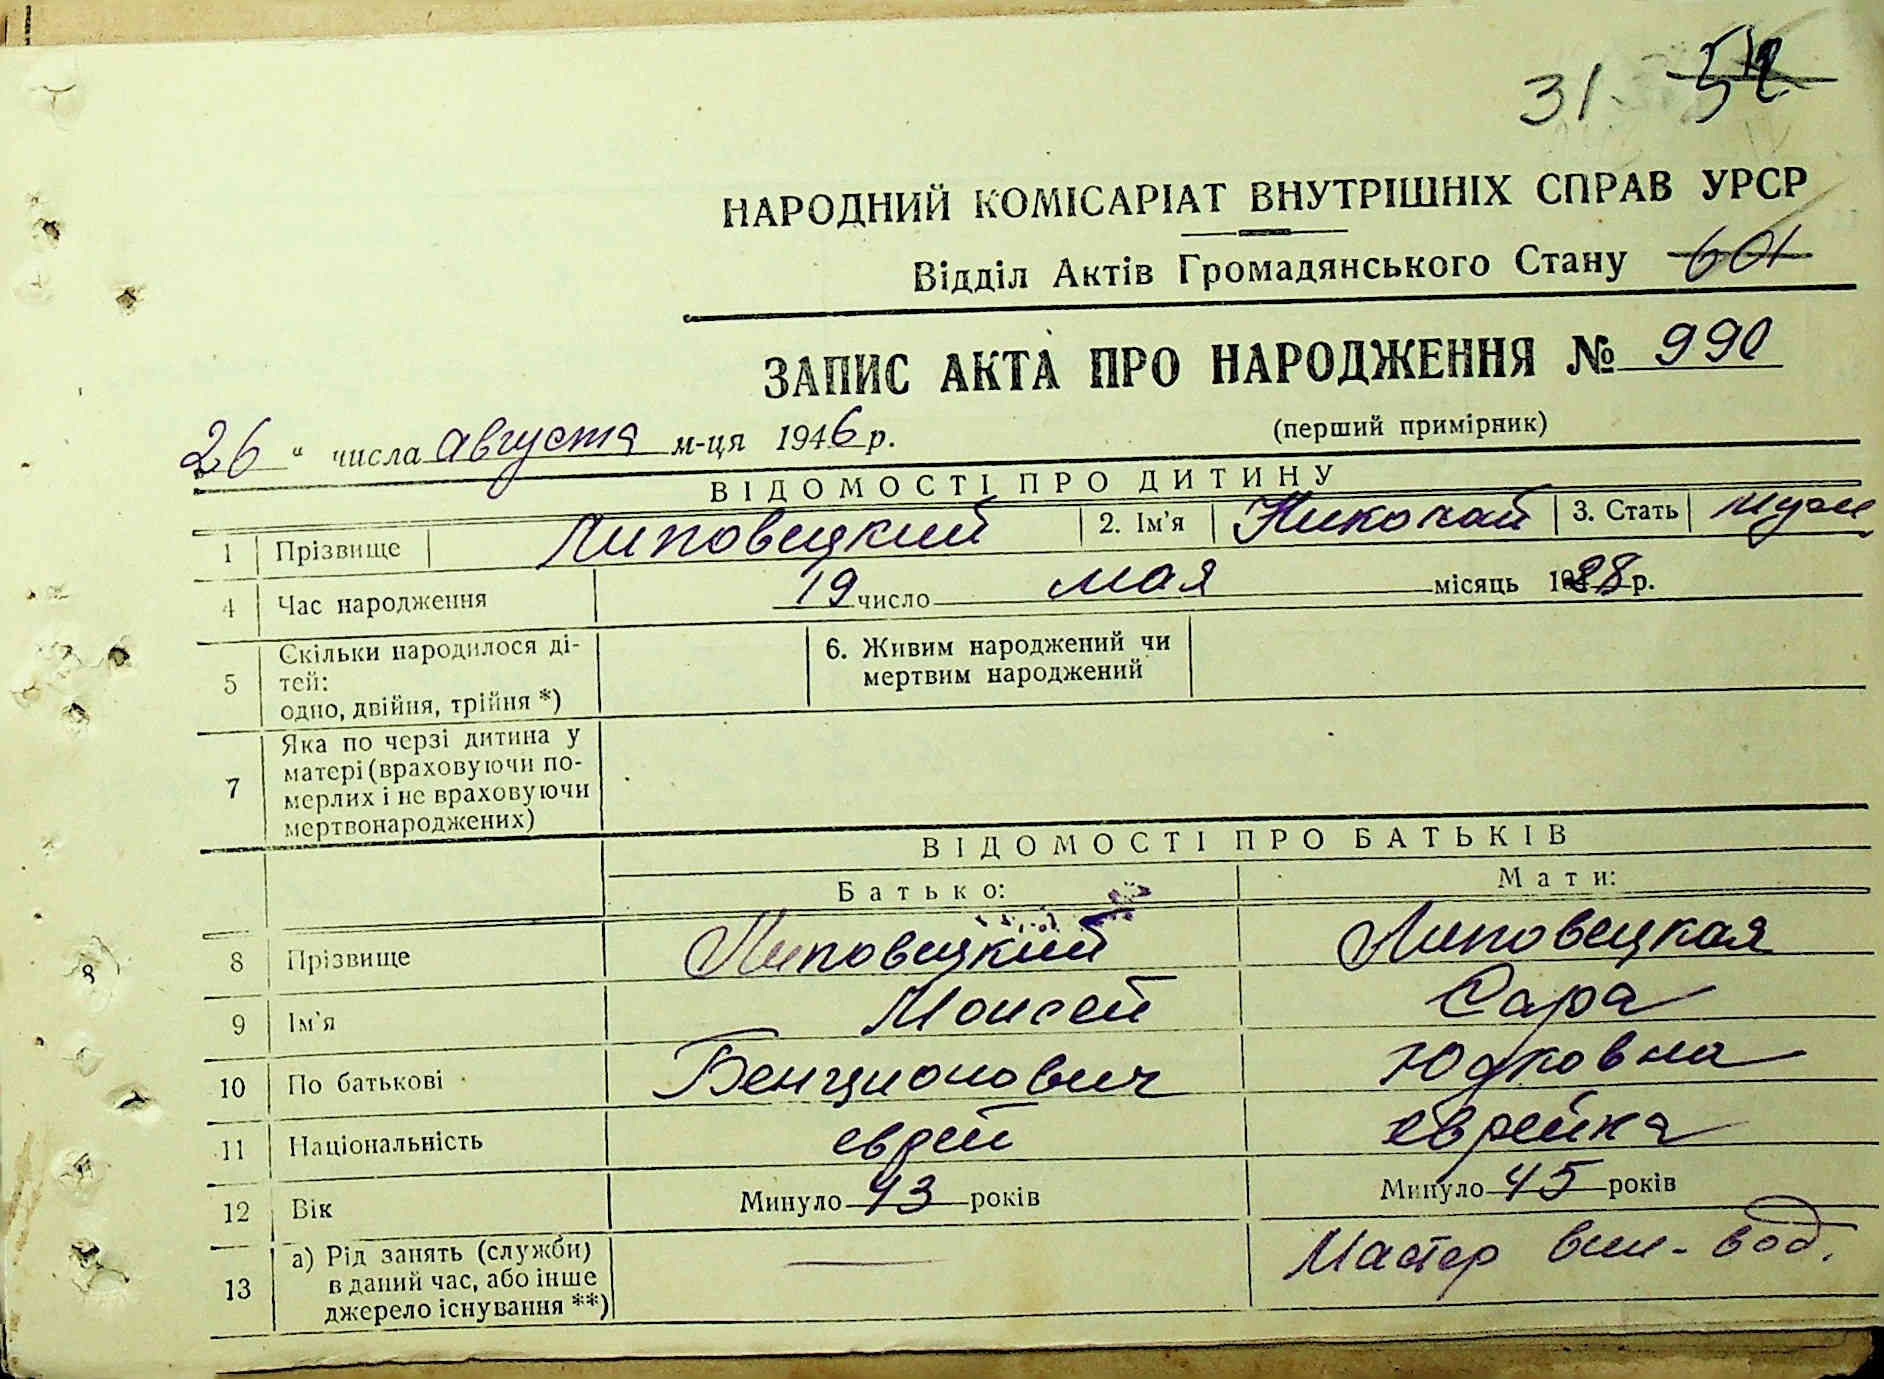 31
52
НАРОДНИЙ КОМІСАРІАТ ВНУТРІШНІХ СПРАВ УРСР
Відділ Актів Громадянського Стану 601
ЗАПИС АКТА ПРО НАРОДЖЕННЯ № 990
(перший примірник)
26 " числа августа м-ця 1946 р.
ВІДОМОСТІ ПРО ДИТИНУ
1 Прізвище Липовецкий 2. Ім'я Николай 3. Стать муж
4 Час народження 19 число мая місяць 1928 р.
5 Скільки народилося ді-
тей:
одно, двійня, трійня *)
6. Живим народжений чи
мертвим народжений
7 Яка по черзі дитина у
матері (враховуючи по-
мерлих і не враховуючи
мертвонароджених)
ВІДОМОСТІ ПРО БАТЬКІВ
Батько: Мати:
8 Прізвище Липовецкий Липовецкая
9 Ім'я Моисей Сара
10 По батькові Бенционович Юдковна
11 Національність еврей еврейка
12 Вік Минуло 43 років Минуло 45 років
13 а) Рід занять (служби)
в даний час, або інше
джерело існування **)
Мастер вин-вод.